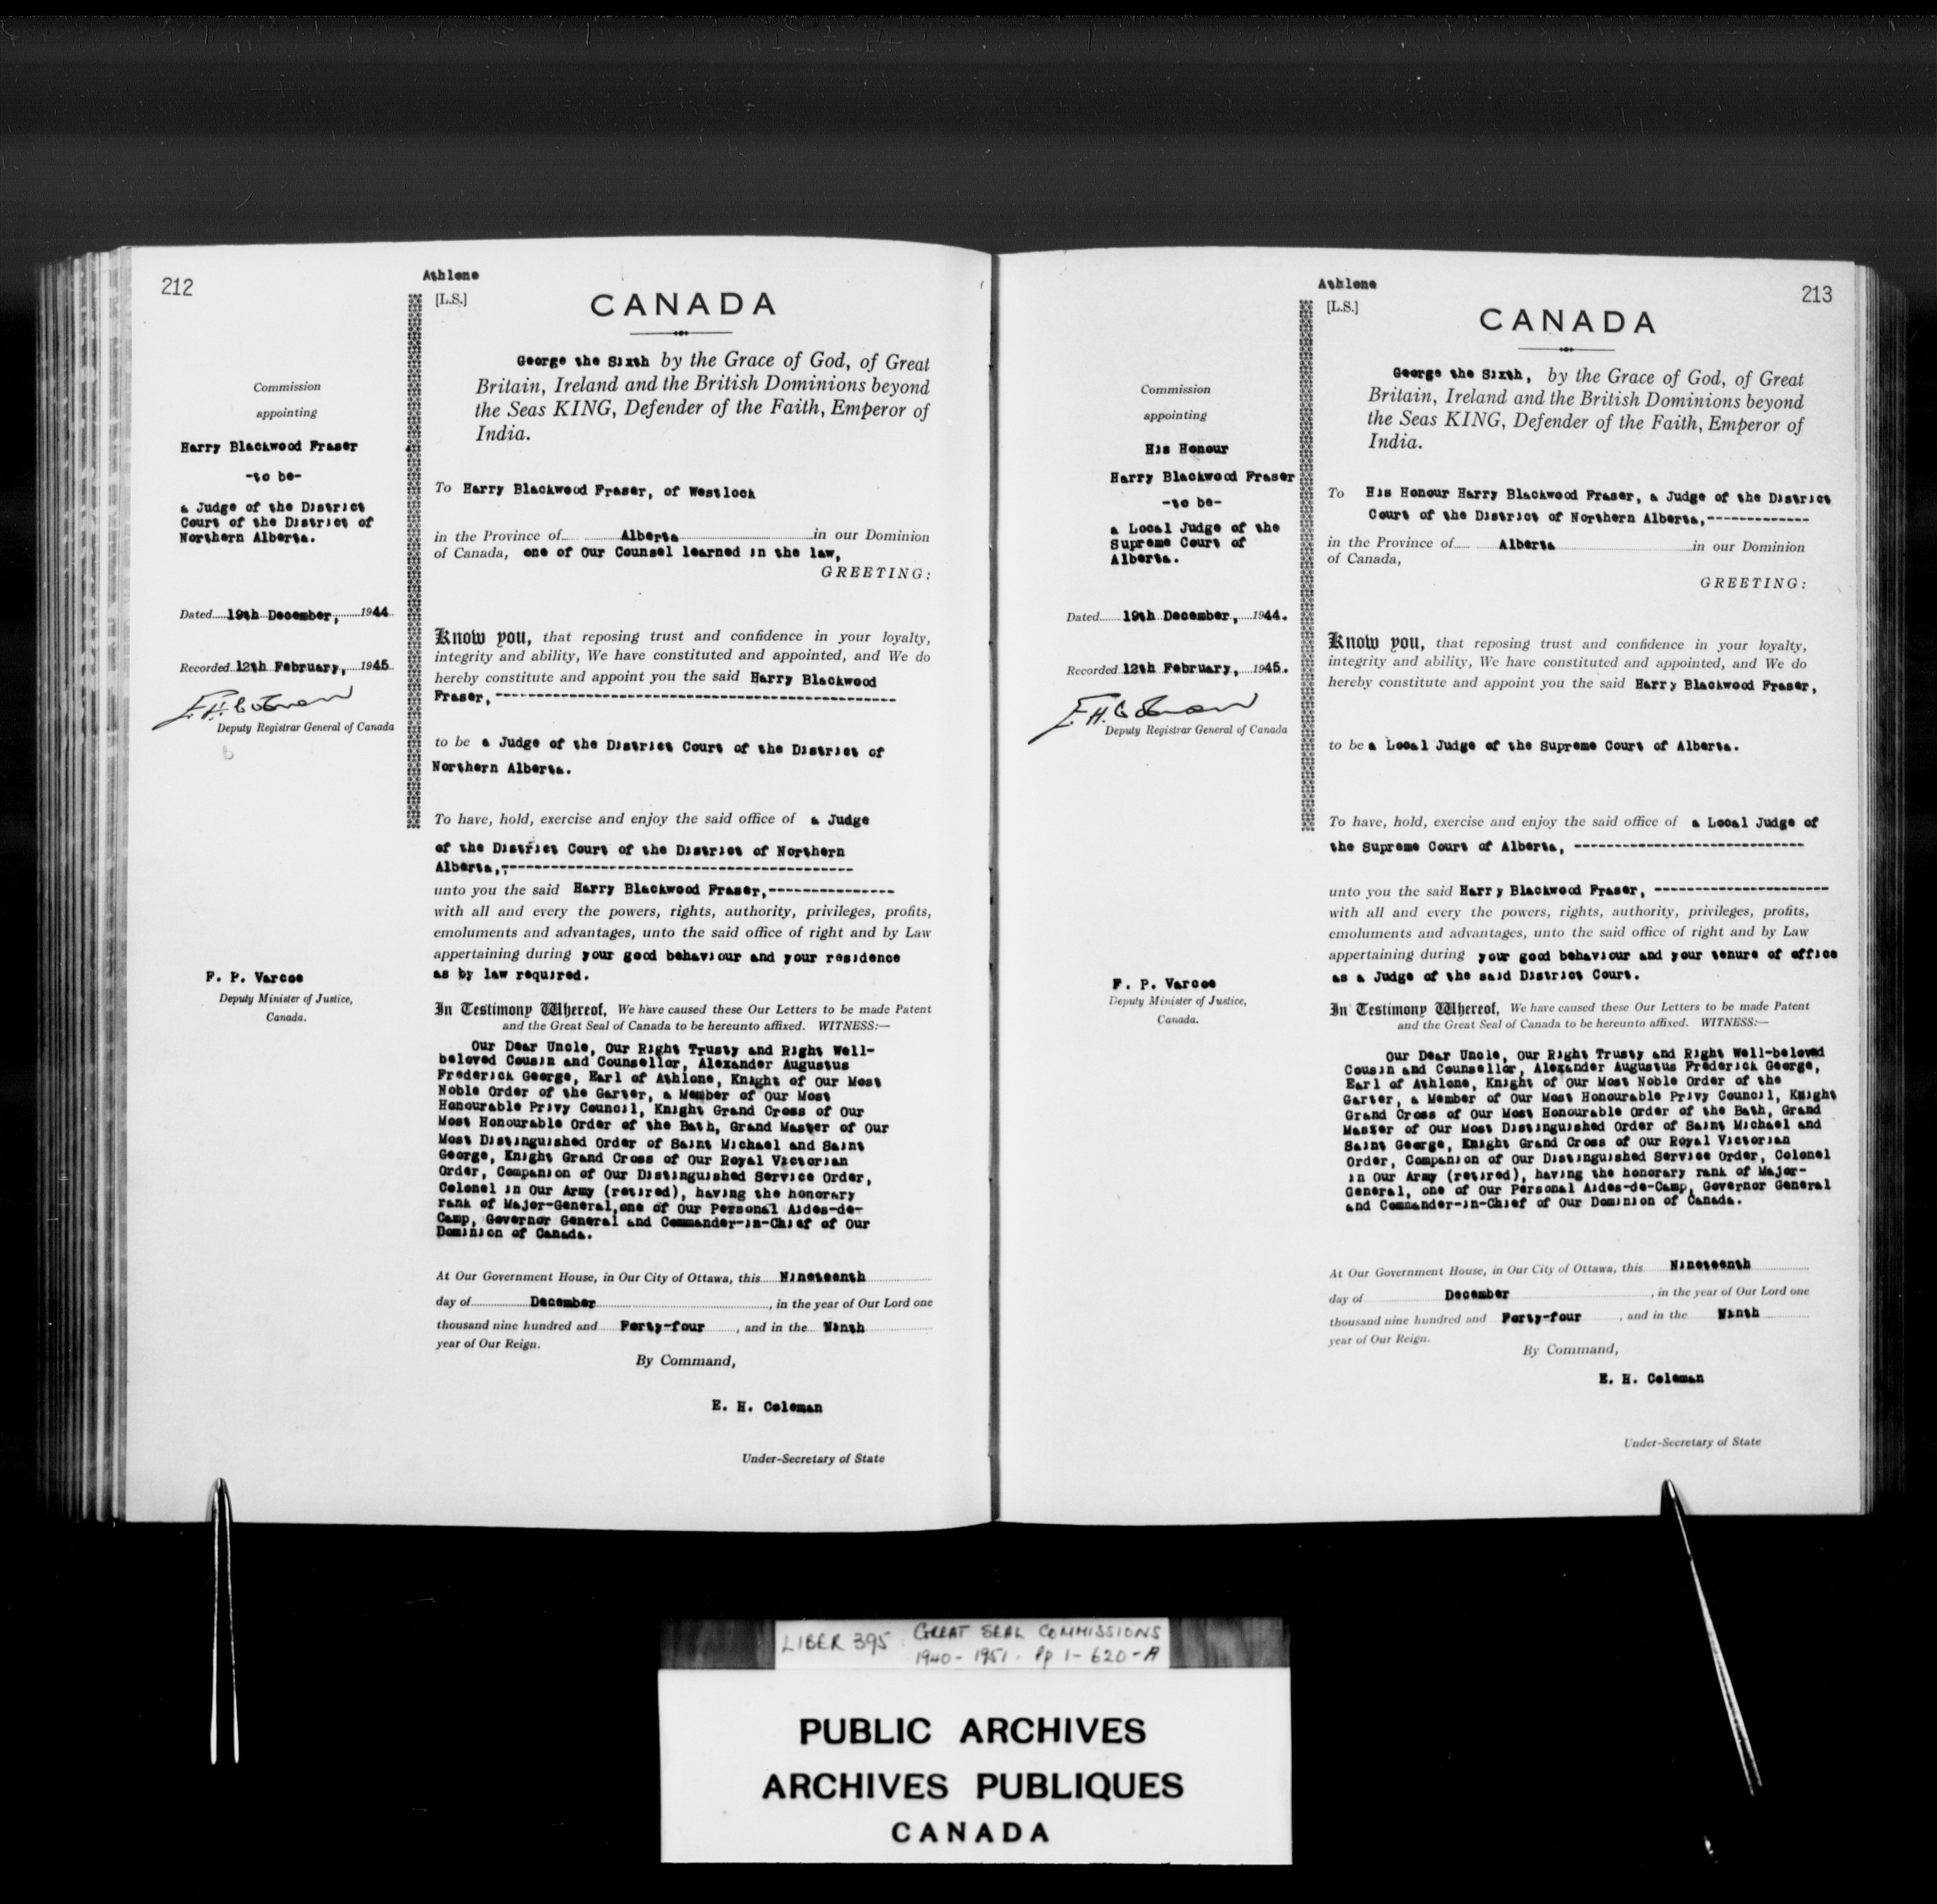 212
Athlone
[L.S.]
CANADA
George the Sixth by the Grace of God, of Great
Britain, Ireland and the British Dominions beyond
the Seas KING, Defender of the Faith, Emperor of
India.
Commission
appointing
Harry Blackwood Fraser
-to be-
a Judge of the District
Court of the District of
Northern Alberta.
Dated 19th December, 1944
Recorded 12th February, 1945
Deputy Registrar General of Canada
F. P. Varcoe
Deputy Minister of Justice,
Canada.
To Harry Blackwood Fraser, of Westlock
in the Province of Alberta in our Dominion
of Canada, one of Our Counsel learned in the law,
GREETING:
Know you, that reposing trust and confidence in your loyalty,
integrity and ability, We have constituted and appointed, and We do
hereby constitute and appoint you the said Harry Blackwood
Fraser,--------------------------------------------------
to be a Judge of the District Court of the District of
Northern Alberta.
To have, hold, exercise and enjoy the said office of a Judge
of the District Court of the District of Northern
Alberta,--------------------------------------------
unto you the said Harry Blackwood Fraser,---------------
with all and every the powers, rights, authority, privileges, profits,
emoluments and advantages, unto the said office of right and by Law
appertaining during your good behaviour and your residence
as by law required.
In Testimony Whereof, We have caused these Our Letters to be made Patent
and the Great Seal of Canada to be hereunto affixed. WITNESS:—
Our Dear Uncle, Our Right Trusty and Right Well-
beloved Cousin and Counsellor, Alexander Augustus
Frederick George, Earl of Athlone, Knight of Our Most
Noble Order of the Garter, a Member of Our Most
Honourable Privy Council, Knight Grand Cross of Our
Most Honourable Order of the Bath, Grand Master of Our
Most Distinguished Order of Saint Michael and Saint
George, Knight Grand Cross of Our Royal Victorian
Order, Companion of Our Distinguished Service Order,
Colonel in Our Army (retired), having the honorary
rank of Major-General,one of Our Personal Aides-de-
Camp, Governor General and Commander-in-Chief of Our
Dominion of Canada.
At Our Government House, in Our City of Ottawa, this Nineteenth
day of December, in the year of Our Lord one
thousand nine hundred and Forty-four, and in the Ninth
year of Our Reign.
By Command,
E. H. Coleman
Under-Secretary of State
213
Athlone
[L.S.]
CANADA
George the Sixth, by the Grace of God, of Great
Britain, Ireland and the British Dominions beyond
the Seas KING, Defender of the Faith, Emperor of
India.
Commission
appointing
His Honour
Harry Blackwood Fraser
-to be-
a Local Judge of the
Supreme Court of
Alberta.
Dated 19th December, 1944.
Recorded 12th February, 1945.
Deputy Registrar General of Canada
F. P. Varcoe
Deputy Minister of Justice,
Canada.
To His Honour Harry Blackwood Fraser, a Judge of the District
Court of the District of Northern Alberta,-------------
in the Province of Alberta in our Dominion
of Canada,
GREETING:
Know you, that reposing trust and confidence in your loyalty,
integrity and ability, We have constituted and appointed, and We do
hereby constitute and appoint you the said Harry Blackwood Fraser,
to be a Local Judge of the Supreme Court of Alberta.
To have, hold, exercise and enjoy the said office of a Local Judge of
the Supreme Court of Alberta, ----------------------------
unto you the said Harry Blackwood Fraser, ---------------------
with all and every the powers, rights, authority, privileges, profits,
emoluments and advantages, unto the said office of right and by Law
appertaining during your good behaviour and your tenure of office
as a Judge of the said District Court.
In Testimony Whereof, We have caused these Our Letters to be made Patent
and the Great Seal of Canada to be hereunto affixed. WITNESS:—
Our Dear Uncle, Our Right Trusty and Right Well-beloved
Cousin and Counsellor, Alexander Augustus Frederick George,
Earl of Athlone, Knight of Our Most Noble Order of the
Garter, a Member of Our Most Honourable Privy Council, Knight
Grand Cross of Our Most Honourable Order of the Bath, Grand
Master of Our Most Distinguished Order of Saint Michael and
Saint George, Knight Grand Cross of Our Royal Victorian
Order, Companion of Our Distinguished Service Order, Colonel
in Our Army (retired), having the honorary rank of Major-
General, one of Our Personal Aides-de-Camp, Governor General
and Commander-in-Chief of Our Dominion of Canada.
At Our Government House, in Our City of Ottawa, this Nineteenth
day of December, in the year of Our Lord one
thousand nine hundred and Forty-four, and in the Ninth
year of Our Reign.
By Command,
E. H. Coleman
Under-Secretary of State
LIBER 395 GREAT SEAL COMMISSIONS
1940-1951. Pp 1-620-A
PUBLIC ARCHIVES
ARCHIVES PUBLIQUES
CANADA